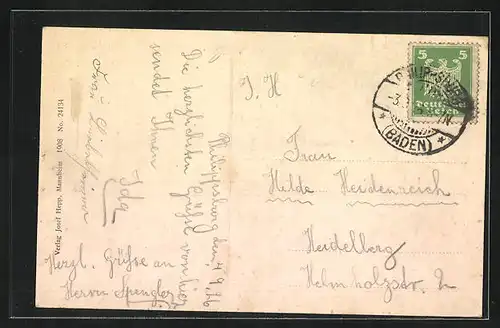 Philippsburg den, 4.9.26
Die herzlichsten Grüße von hier
sendet Ihnen
Ida
Frau
Herzl. Grüsse an
Herrn Spengler
Verlag Josef Hepp, Mannheim 1908 No. 24134
J. H
Frau
Hilde Heidenreich
Heidelberg
Helmholzstr. 2
5 5
Deutsches
(BADEN)